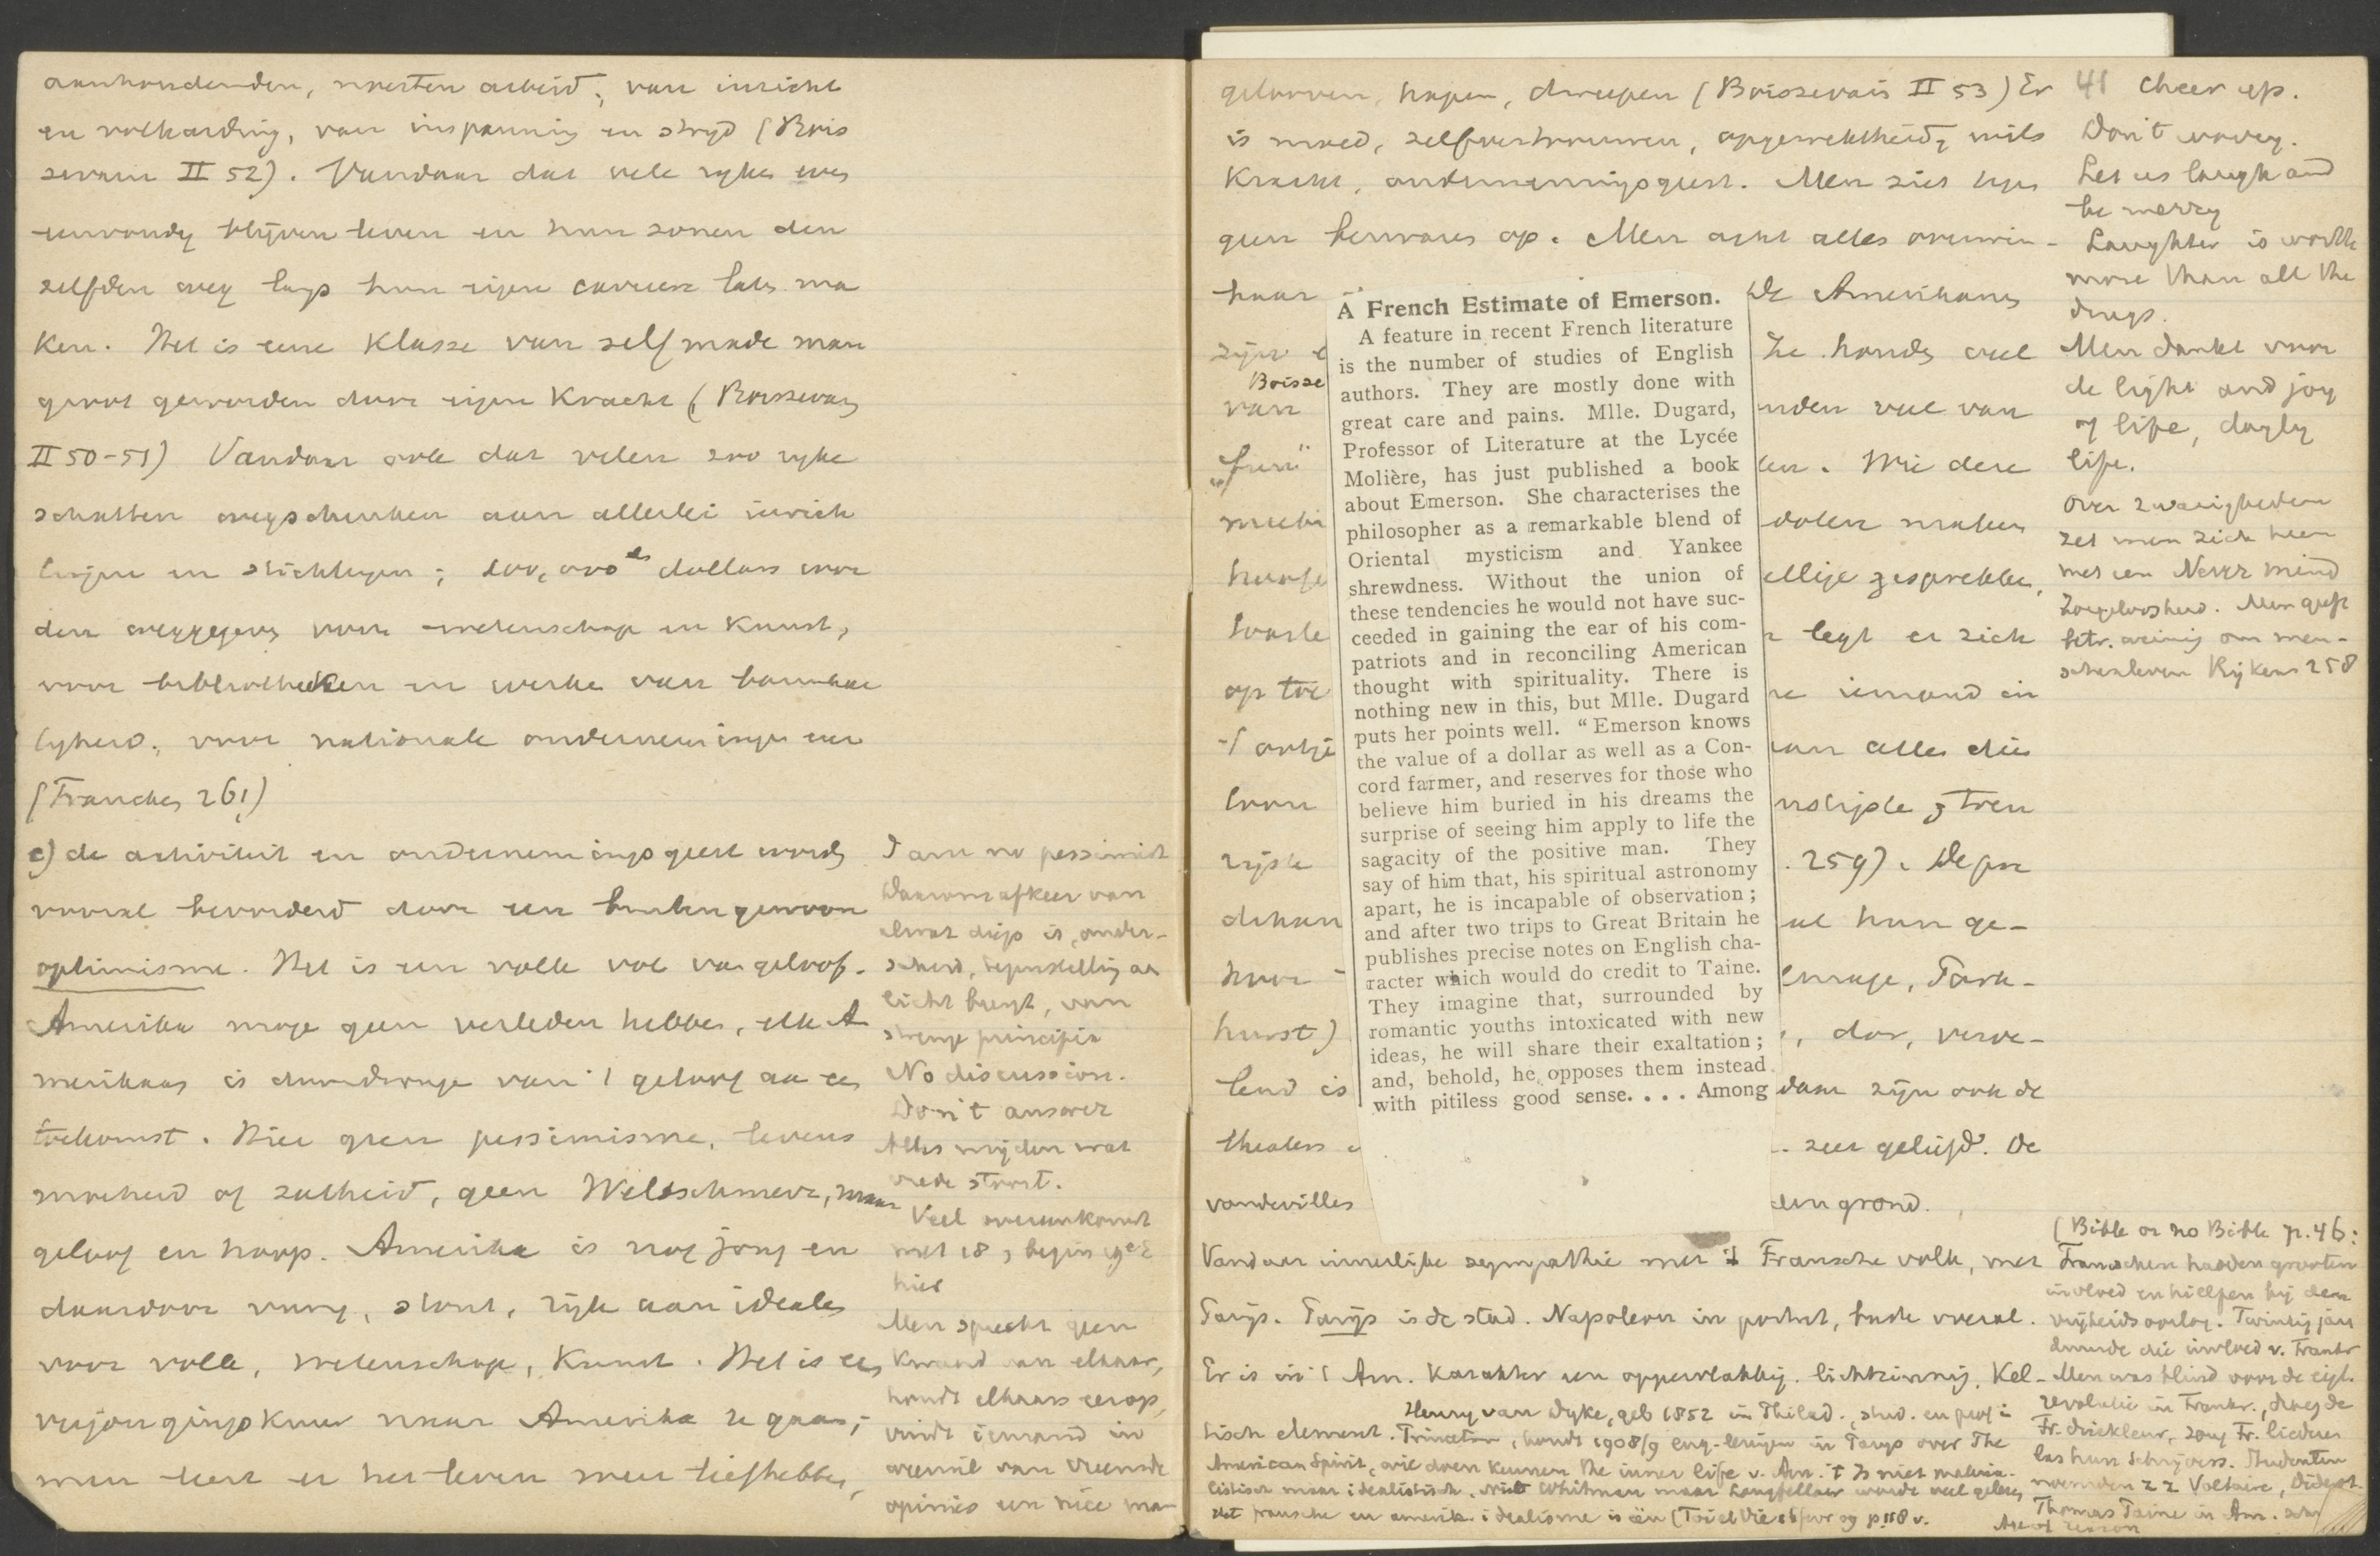 aanhoudenden, noesten arbeid, van inzicht
en volharding, van inspanning en strijd (Bois
sevain II 52). Vandaar dat vele rijken
eenvoudig blijven leven en hun zonen den
zelfden weg langs hun eigen carriere laten ma
ken. Het is eene klasse van self made man
groot geworden door eigen kracht (Boissevain
II 50-51) Vandaar ook dat velen zoo rijke
schatten wegschenken aan allerlei inrich
tingen en stichtingen; 100,000den dollars wor
den weggegeven voor wetenschap en kunst,
voor bibliotheken en werken van barmhar
tigheid, voor nationale ondernemingen enz
(Francken 261)
c) de activiteit en ondernemingsgeest wordt
vooral bevorderd door een buitengewoon
optimisme. Het is een volk vol van geloof.
Amerika moge geen verleden hebben, elk A
merikaan is doordrongen van 't geloof aan een
toekomst. Hier geen pessimisme, levens
moeheid of zatheid, geen Weltschmerz, maar
geloof en hoop. Amerika is nog jong en
daardoor vurig, stout, rijk aan idealen
voor volk, wetenschap, kunst. Het is een
verjongingskuur naar Amerika te gaan;
men leert er het leven weer liefhebben,
I am no pessimist
Daarom afkeer van
alwat diep is, onder-
scheid, tegenstelling aan
licht brengt, van
strenge principia
No discussion.
Don't answer
Alles mijden wat
vrede stoort.
Veel overeenkomst
met 18, begin 19e E
hier
Men spreekt geen
kwaad van elkaar,
houdt elkaars eer op,
vindt iemand in
weerwil van vreemde
opinies een nice man
gelooven, hopen, dweepen (Boissevain II 53) Er
is moed, zelfvertrouwen, opgewektheid, wils
kracht, ondernemingsgeest. Men ziet tegen
geen bezwaren op. Men acht alles overwin-
baar
De Amerikanen
zijn
Ze houden veel
Boisse
van
nden vol van
„fun"
len. Wie deze
dolen maken
ellige gesprekken,
legt er zich
op toe
iemand in
van alles dit
toon
259).
hun ge-
hurst)
, dor, verve-
lend is
daar zijn ook de
theaters
zeer geliefd. De
vaudevilles
den grond.
Vandaar innerlijke sympathie met 't Fransche volk, met
Parijs. Parijs is de stad. Napoleon in portret, buste overal.
Er is in 't Am. karakter een oppervlakkig. lichtzinnig, Kel-
tisch element.
Henry van Dyke, geb 1852 in Philad., stud. en prof in
Princeton, houdt 1908/9 eng. lezingen in Parijs over The
American Spirit, wil doen kennen the inner life v. Am. 't Is niet materia-
listisch maar idealistisch. Niet Whitman maar Longfellow wordt veel gelezen
Het fransche en amerik. idealisme is één
A French Estimate of Emerson.
A feature in recent French literature
is the number of studies of English
authors. They are mostly done with
great care and pains. Mlle. Dugard,
Professor of Literature at the Lycée
Molière, has just published a book
about Emerson. She characterises the
philosopher as a remarkable blend of
Oriental mysticism and Yankee
shrewdness. Without the union of
these tendencies he would not have suc-
ceeded in gaining the ear of his com-
patriots and in reconciling American
thought with spirituality. There is
nothing new in this, but Mlle. Dugard
puts her points well. "Emerson knows
the value of a dollar as well as a Con-
cord farmer, and reserves for those who
believe him buried in his dreams the
surprise of seeing him apply to life the
sagacity of the positive man. They
say of him that, his spiritual astronomy
apart, he is incapable of observation;
and after two trips to Great Britain he
publishes precise notes on English cha-
racter which would do credit to Taine.
They imagine that, surrounded by
romantic youths intoxicated with new
ideas, he will share their exaltation;
and, behold, he opposes them instead
with pitiless good sense. . . . Among
41 Cheer up.
Don't worry.
Let us laugh and
be merry
Laughter is worth
more than all the
drugs.
Men dankt voor
de light and joy
of life, dayly
life.
Over zwarigheden
zet men zich heen
met een Never mind
Zorgeloosheid. Men geeft
betr. weinig om men-
schenleven Rijkens 258
(Bible or no Bible p. 46:
Franschen hadden grooten
invloed en hielpen bij den
vrijheidsoorlog. Twintig jaar
duurde die invloed v. Frankr
Men was blind voor de eigl.
revolutie in Frankr., droeg de
Fr. driekleur, zong Fr. liederen
las hun schrijvers. Studenten
noemden zz Voltaire, Diderot
Thomas Paine in Am.
Age of reason